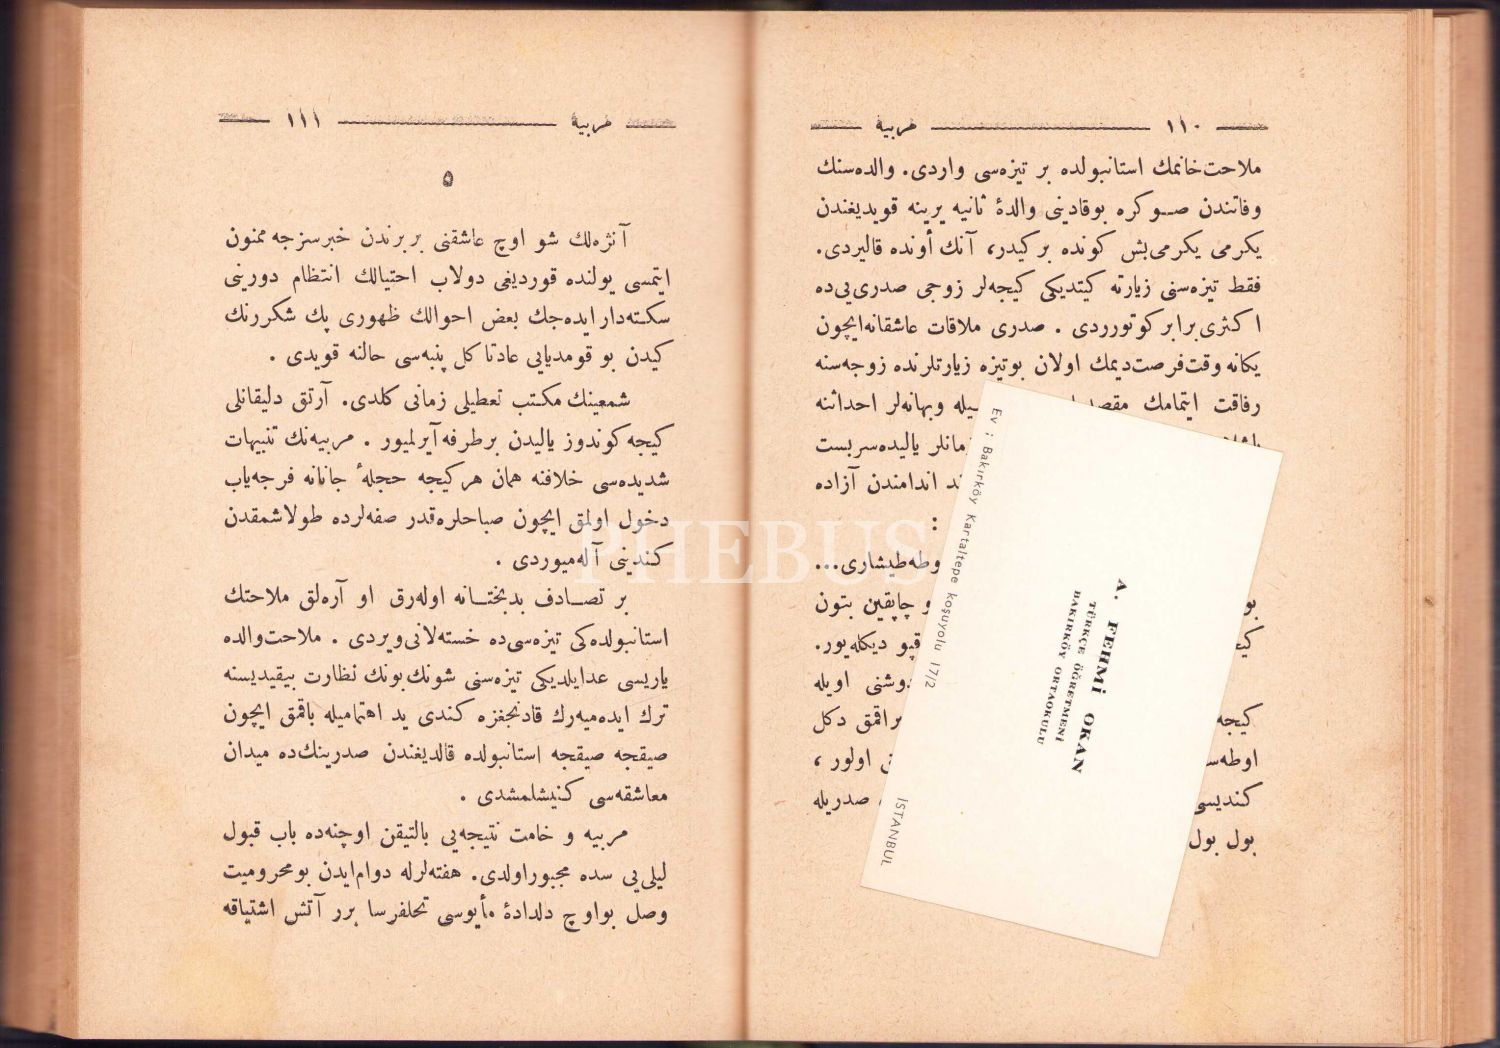 ١١٠ مربیه
ملاحت خانمك استانبولده بر تیزه‌سی واردی. والده‌سنك
وفاتندن صوكره بوقادینی والدهٔ ثانیه یرینه قویدیغندن
یكرمی یكرمی‌بش كونده بر كیدر، آنك أونده قالیردی.
فقط تیزه‌سنی زیارته كیتدیكی كیجه‌لر زوجی صدری‌یی‌ده
اكثری برابر كوتورردی. صدری ملاقات عاشقانه‌ایچون
یكانه وقت‌فرصت‌دیمك اولان بوتیزه زیارتلرنده زوجه‌سنه
رفاقت ایتمامك مقصد یله وبهانه‌لر احداثنه
مانلر یالیده‌سربست
ند اندامندن آزاده
:
وطه‌طیشاری...
بو و چاپقین بتون
كیج قپو دیكله‌یور.
دوشنی اویله
كیجه براقمق دكل
اوطه‌س اولور ،
كندیسی صدریله
بول بول
A. FEHMİ OKAN
TÜRKÇE ÖĞRETMENİ
BAKIRKÖY ORTAOKULU
Ev : Bakırköy Kartaltepe Koşuyolu 17/2
İSTANBUL
مربیه ١١١
٥
آنژه‌لك شو اوچ عاشقنی بربرندن خبرسزجه ممنون
ایتمسی یولنده قوردیغی دولاب احتیالك انتظام دورینی
سكته‌دار ایده‌جك بعض احوالك ظهوری پك شكررنك
كیدن بو قومدیایی عادتا كل پنبه‌سی حالنه قویدی .
شمعینك مكتب تعطیلی زمانی كلدی. آرتق دلیقانلی
كیجه كوندوز یالیدن برطرفه آیرلمیور . مربیه‌نك تنبیهات
شدیده‌سی خلافنه همان هركیجه حجلهٔ جانانه فرجه‌یاب
دخول اولمق ایچون صباحلره‌قدر صفه‌لرده طولاشمقدن
كندینی آله‌میوردی .
بر تصادف بدبختانه اوله‌رق او آره‌لق ملاحتك
استانبولده‌كی تیزه‌سی‌ده خسته‌لانی‌ویردی . ملاحت‌والده
یاریسی عدایلدیكی تیزه‌سنی شونك‌بونك نظارت بیقیدیسنه
ترك ایده‌میه‌رك قادنجغزه كندی ید اهتمامیله باقمق ایچون
صیقجه صیقجه استانبولده قالدیغندن صدرینك‌ده میدان
معاشقه‌سی كنیشلمشدی .
مربیه و خامت نتیجه‌یی بالتیقن اوچنه‌ده باب قبول
لیلی‌یی سده مجبوراولدی. هفته‌لرله دوام‌ایدن بومحرومیت
وصل بواوچ دلدادهٔ مأیوسی تحلفرسا برر آتش اشتیاقه
PHEBUS